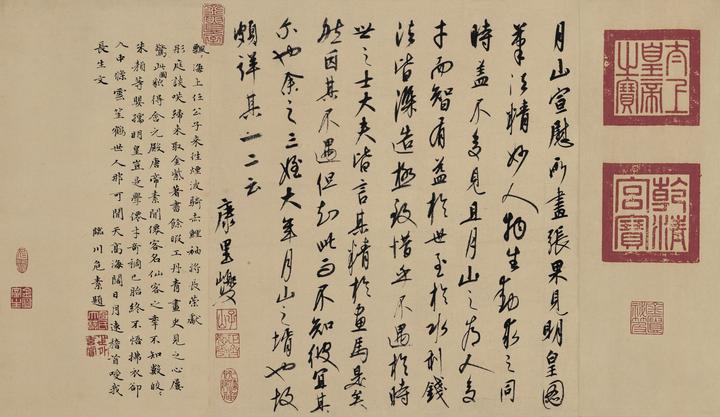 太上皇帝之寶
乾清宮寶
月山宣慰所畫張果見明皇圖
筆法精妙人物生動求之同
時蓋不多見且月山之為人多
才而智有益於世至於水利錢
法皆深造極致惜乎不遇於時
世之士大夫皆言其精於畫馬是矣
然因其不遇但知此而不知彼宜其
尔也余之三姪大年月山之壻也故
頗詳其一二云
康里巎
飄〻海上任公子來往煙波騎赤鯉袖將長策獻
彤庭談笑歸來取金紫著書餘暇工丹青畫史見之心屢
驚此圖貌得含元殿唐帝素聞僊客名仙客之年不知數皎〻
朱顏等嬰孺明皇豈是學僊才奇調已胎終不悟拂衣卻
入中條雲笙鶴世人那可聞天高海闊日月速稽首受我
長生文
臨川危素題